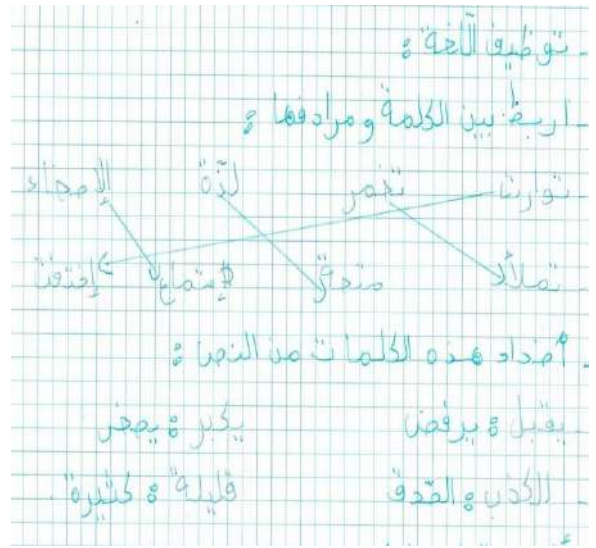 - توظيف اللّغة :
- اربط بين الكلمة و مرادفها :
توارت تغمر لذّة الإصغاء
تملأ متعة الإستماع إختفت
- أضداد هذه الكلمات من النص :
- يقبل : يرفض يكبر : يصغر
- الكذب : الصّدق قليلة : كثيرة .